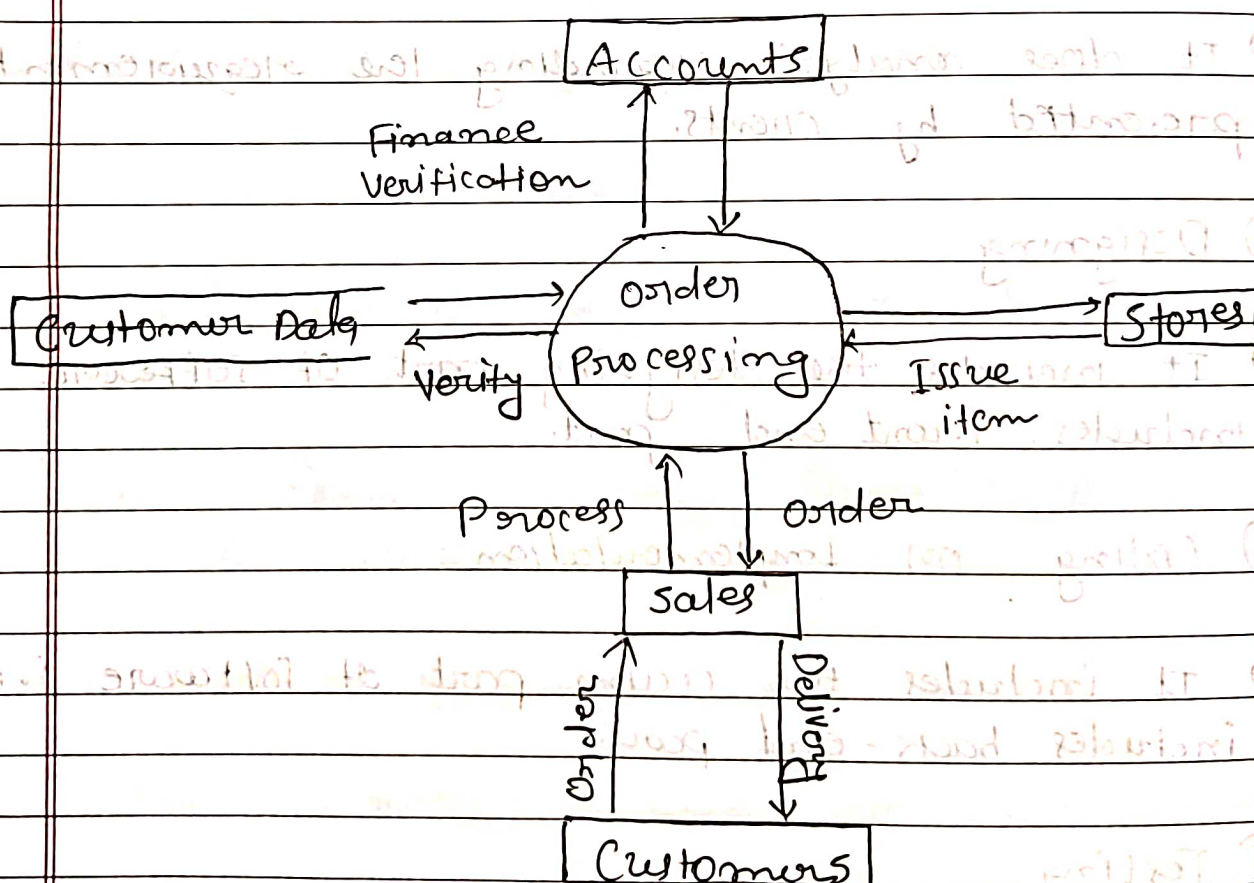 Accounts
Finance
Verification
Customer Data
Order
Processing
Stores
Verify
Issue
item
Process
Order
Sales
Order
Delivery
Customers